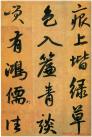 痕上堦緑草
色入簾青談
笑有鴻儒往